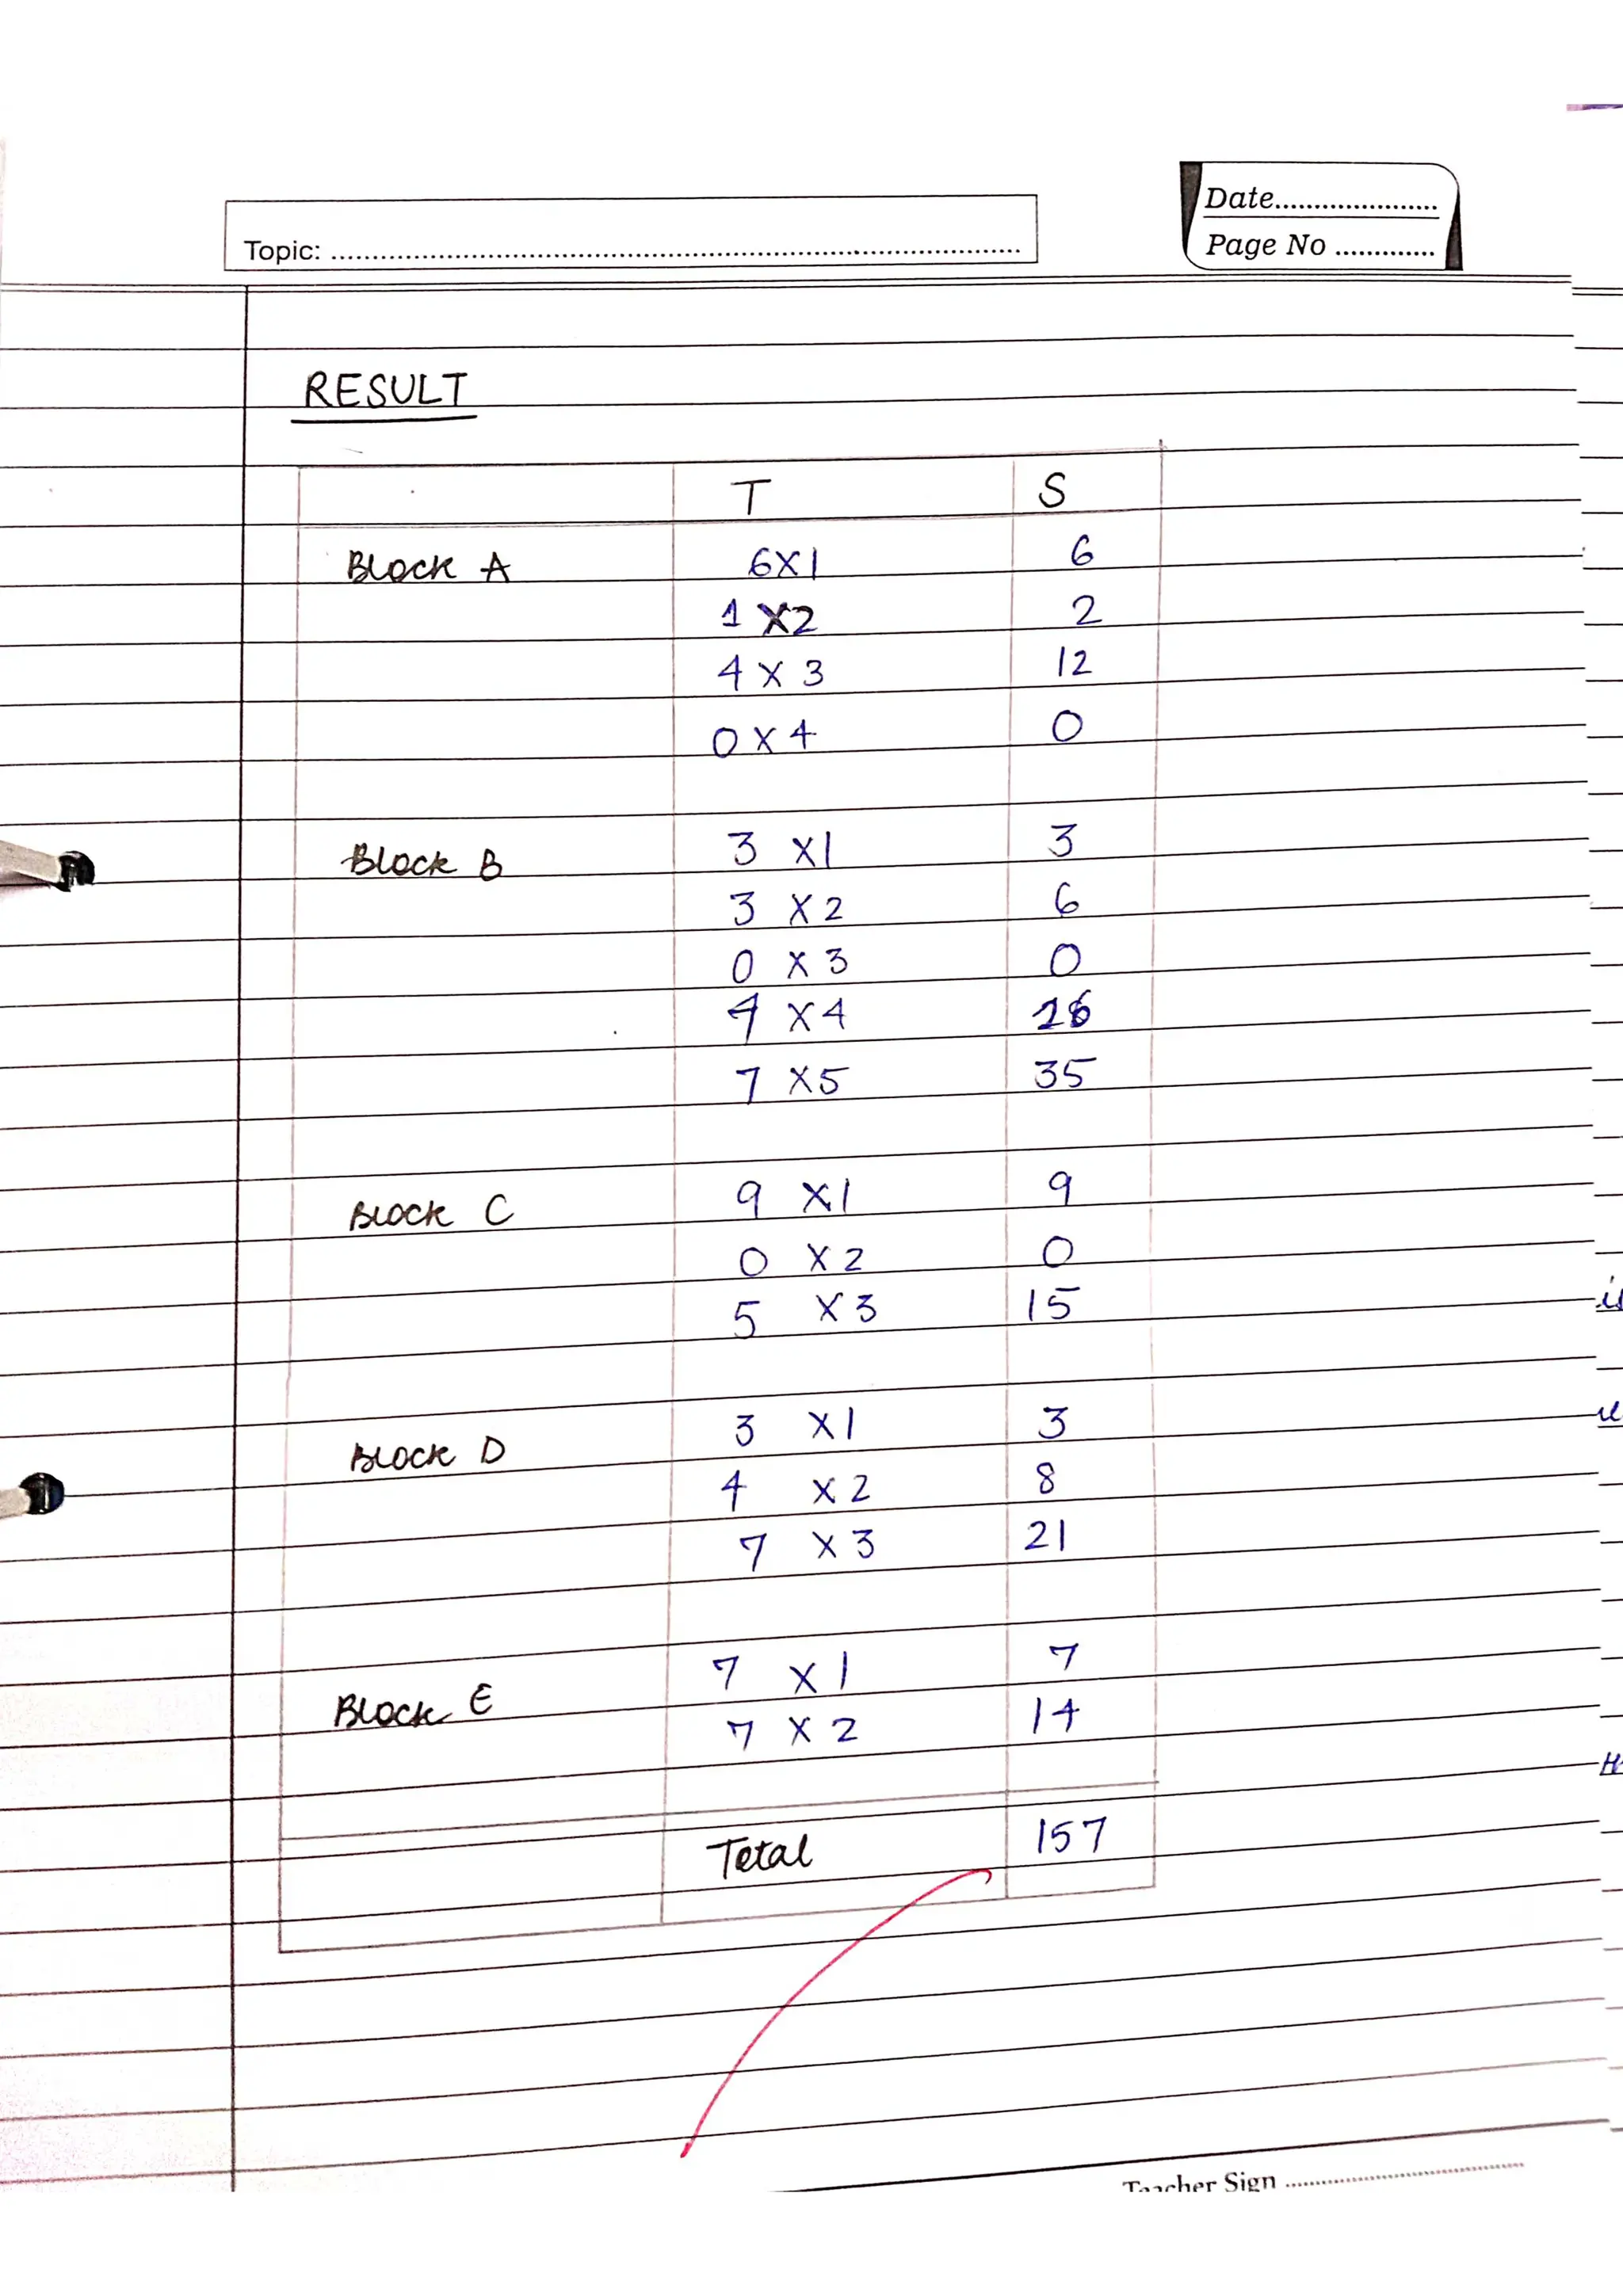 Date.....................
Topic: ..........................................................................................
Page No .............
RESULT
T S
Block A 6X1 6
1 X2 2
4 X 3 12
0 X 4 0
Block B 3 X1 3
3 X2 6
0 X 3 0
4 X4 16
7 X5 35
Block C 9 X1 9
0 X2 0
5 X3 15
Block D 3 X1 3
4 X2 8
7 X3 21
Block E 7 X1 7
7 X 2 14
Total 157
Teacher Sign ..........................................